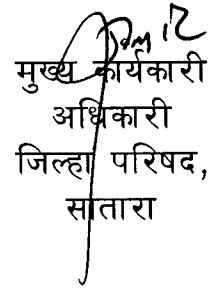 मुख्य कार्यकारी
अधिकारी
जिल्हा परिषद,
सातारा